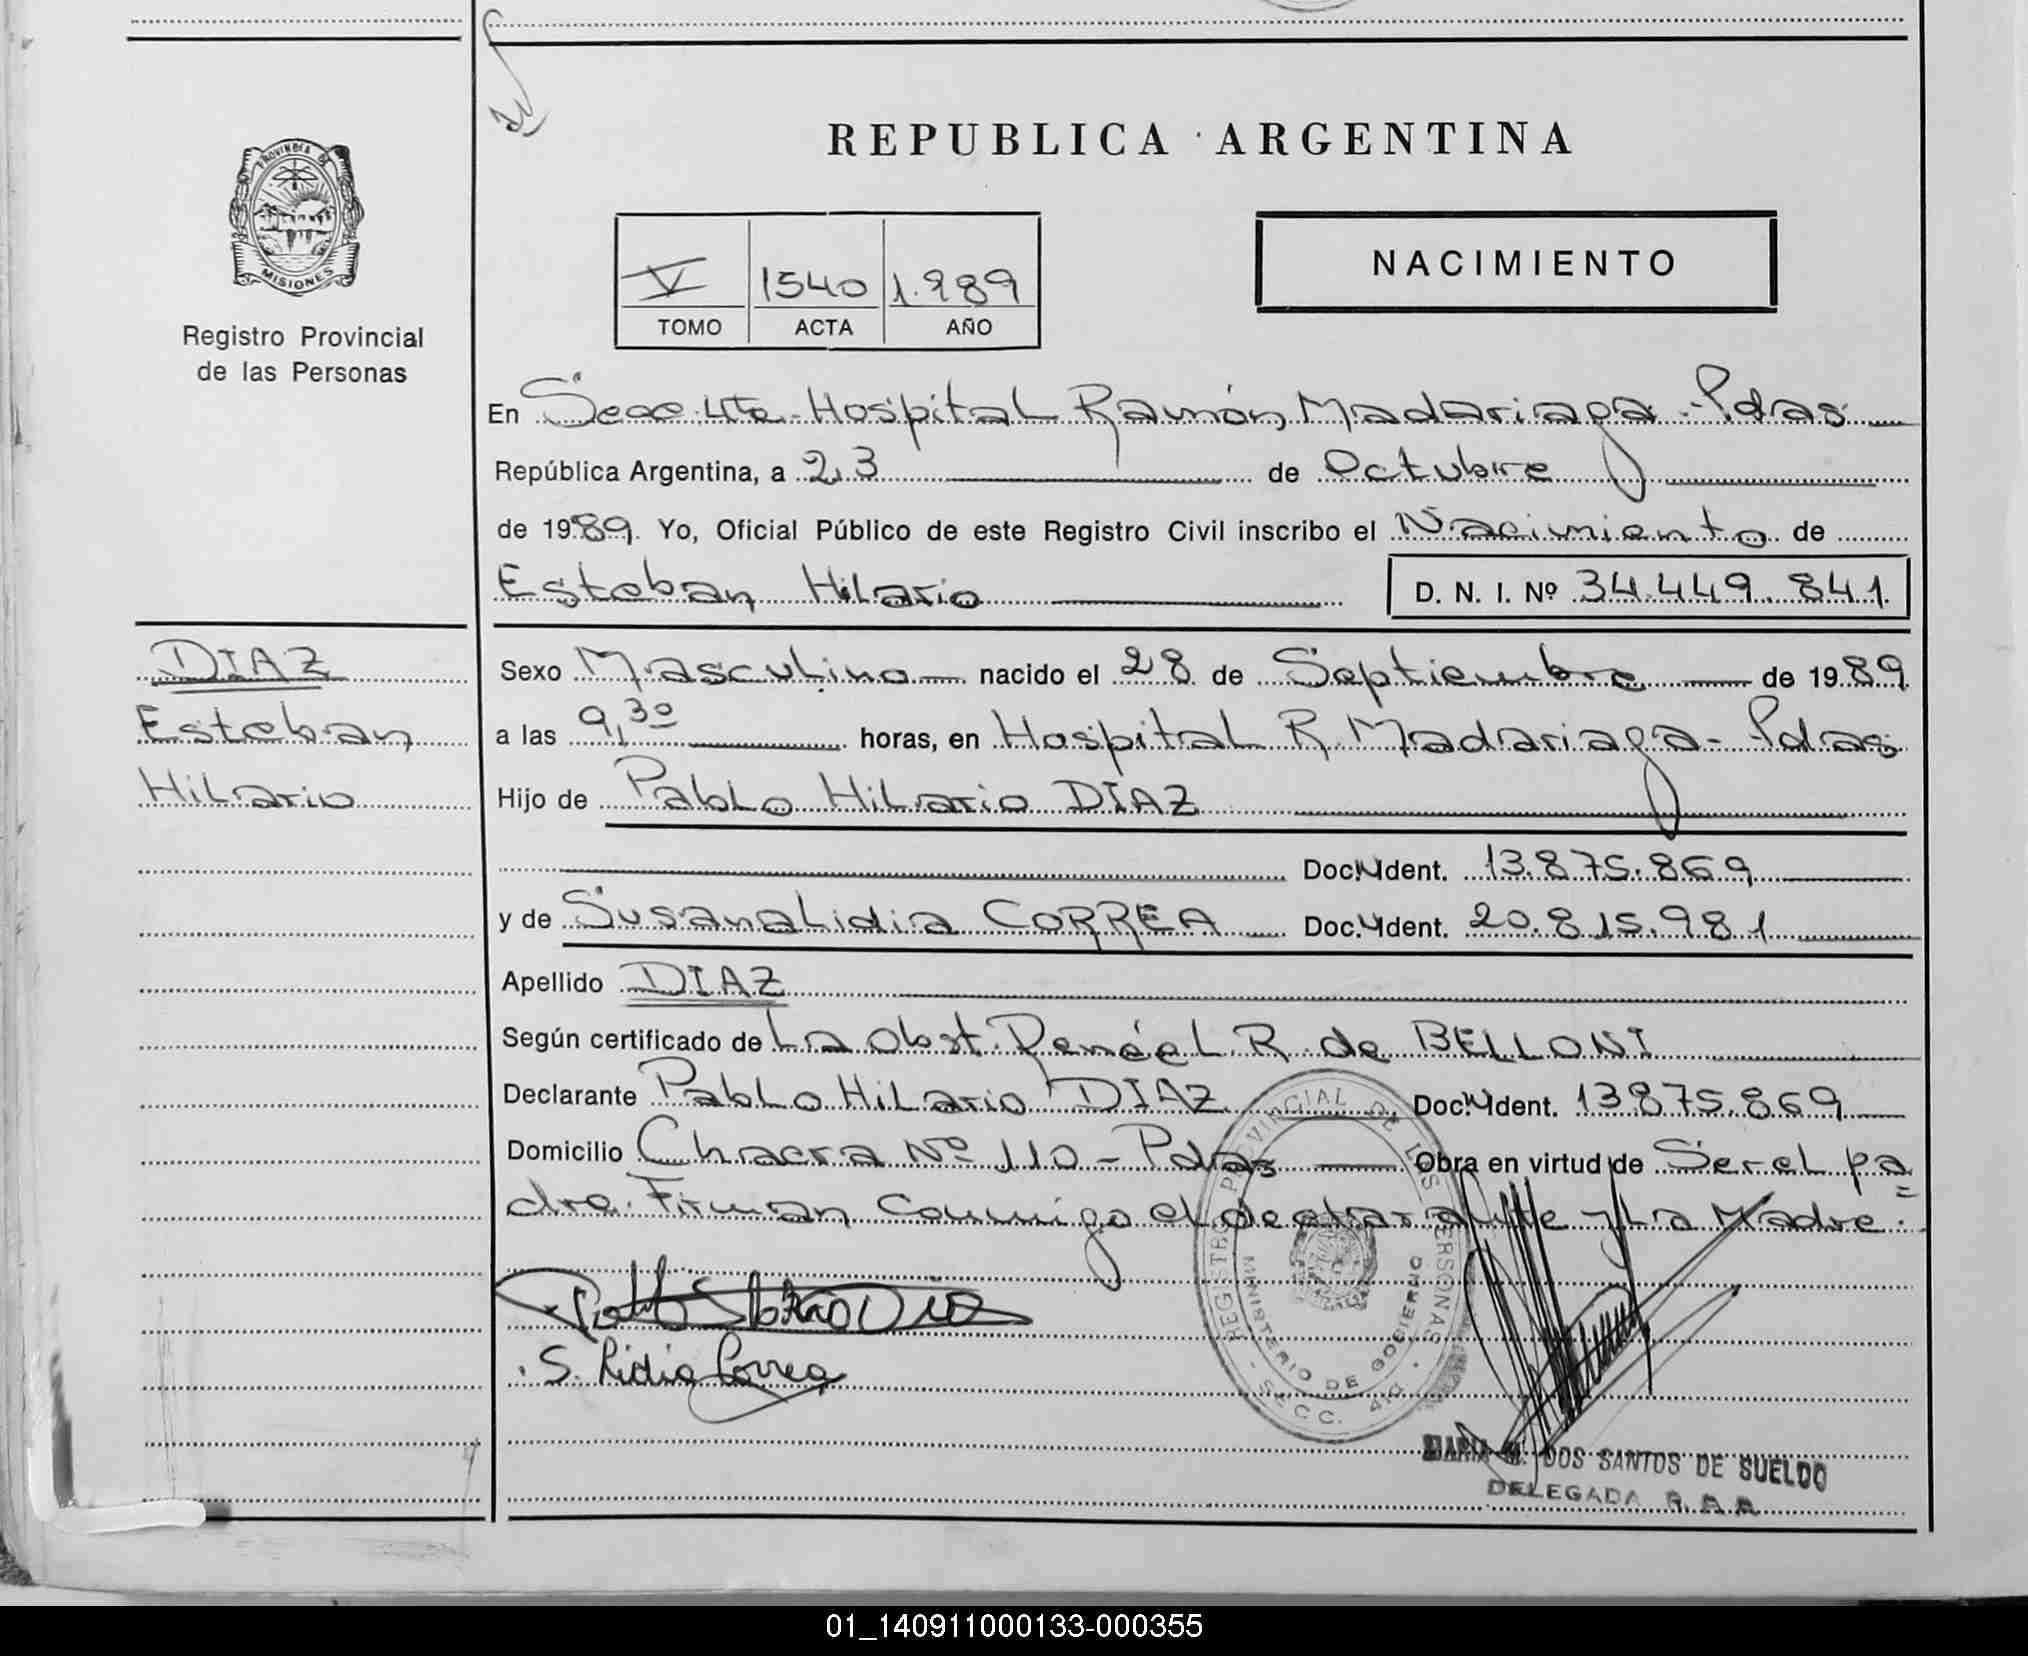 REPUBLICA ARGENTINA
PROVINCIA DE
MISIONES
Registro Provincial
de las Personas
V 1540 1.989
TOMO ACTA AÑO
NACIMIENTO
En Secc. 4ta - Hospital Ramón Madariaga - Pdas
República Argentina, a 23 de Octubre
de 1989. Yo, Oficial Público de este Registro Civil inscribo el Nacimiento de
Esteban Hilario D. N. I. Nº 34.449.841
DIAZ
Esteban
Hilario
Sexo Masculino nacido el 28 de Septiembre de 1989
a las 9,30 horas, en Hospital R. Madariaga - Pdas
Hijo de Pablo Hilario DIAZ
Doc. Ident. 13.875.869
y de Susana Lidia CORREA Doc. Ident. 20.815.981
Apellido DIAZ
Según certificado de La Obst. Renéel R. de BELLONI
Declarante Pablo Hilario DIAZ Doc. Ident. 13875.869
Domicilio Chacra Nº 110 - Pdas Obra en virtud de Ser el pa=
dre. Firman Conmigo el declarante y La Madre.
S. Lidia Correa
REGISTRO PROVINCIAL DE LAS PERSONAS
MINISTERIO DE GOBIERNO
SECC. 4ta.
MARIA M. DOS SANTOS DE SUELDO
DELEGADA
01_140911000133-000355